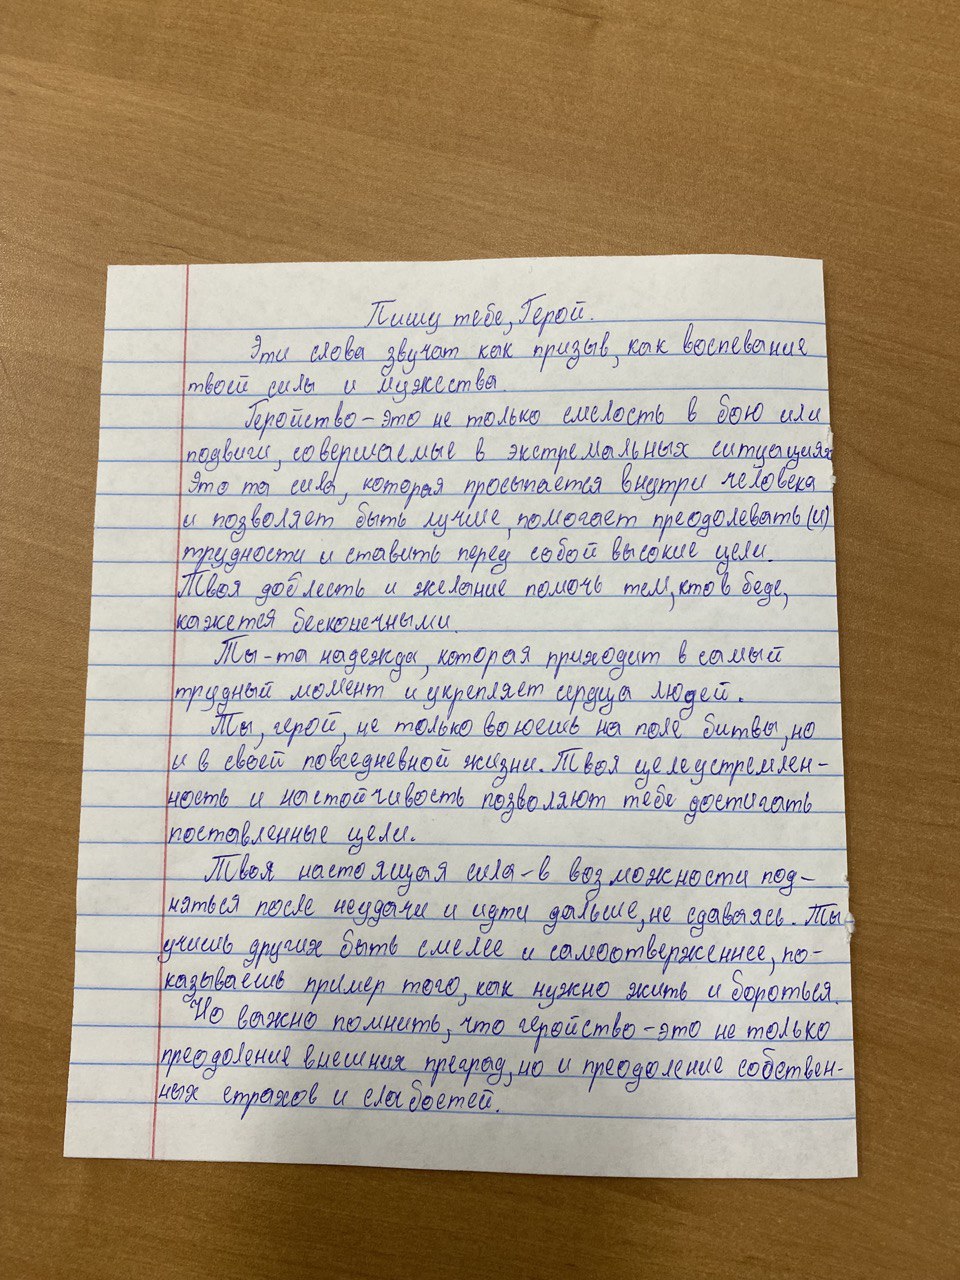 Пишу тебе, Герой.
Эти слова звучат как призыв, как воспевание
твоей силы и мужества.
Геройство – это не только смелость в бою или
подвиги, совершаемые в экстремальных ситуациях
Это та сила, которая просыпается внутри человека
и позволяет быть лучше, помогает преодолевать (и)
трудности и ставить перед собой высокие цели.
Твоя доблесть и желание помочь тем, кто в беде,
кажется бесконечными.
Ты – та надежда, которая приходит в самый
трудный момент и укрепляет сердца людей.
Ты, герой, не только воюешь на поле битвы, но
и в своей повседневной жизни. Твоя целеустремлен-
ность и настойчивость позволяют тебе достигать
поставленные цели.
Твоя настоящая сила – в возможности под-
няться после неудачи и идти дальше, не сдаваясь. Ты
учишь других быть смелее и самоотверженнее, по-
казываешь пример того, как нужно жить и бороться.
Но важно помнить, что геройство – это не только
преодоление внешних преград, но и преодоление собствен-
ных страхов и слабостей.